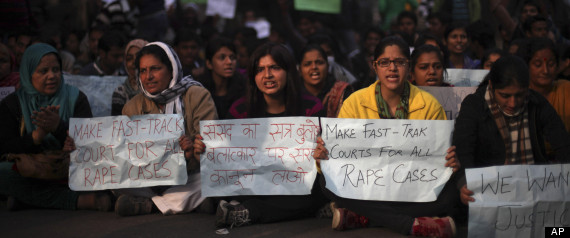 MAKE FAST-TRACK
COURT FOR ALL
RAPE CASES
संसद का सत्र
बलात्कार पर
कानून
MAKE FAST-TRACK
COURTS FOR ALL
RAPE CASES.
WE WAN
JUSTIC
AP